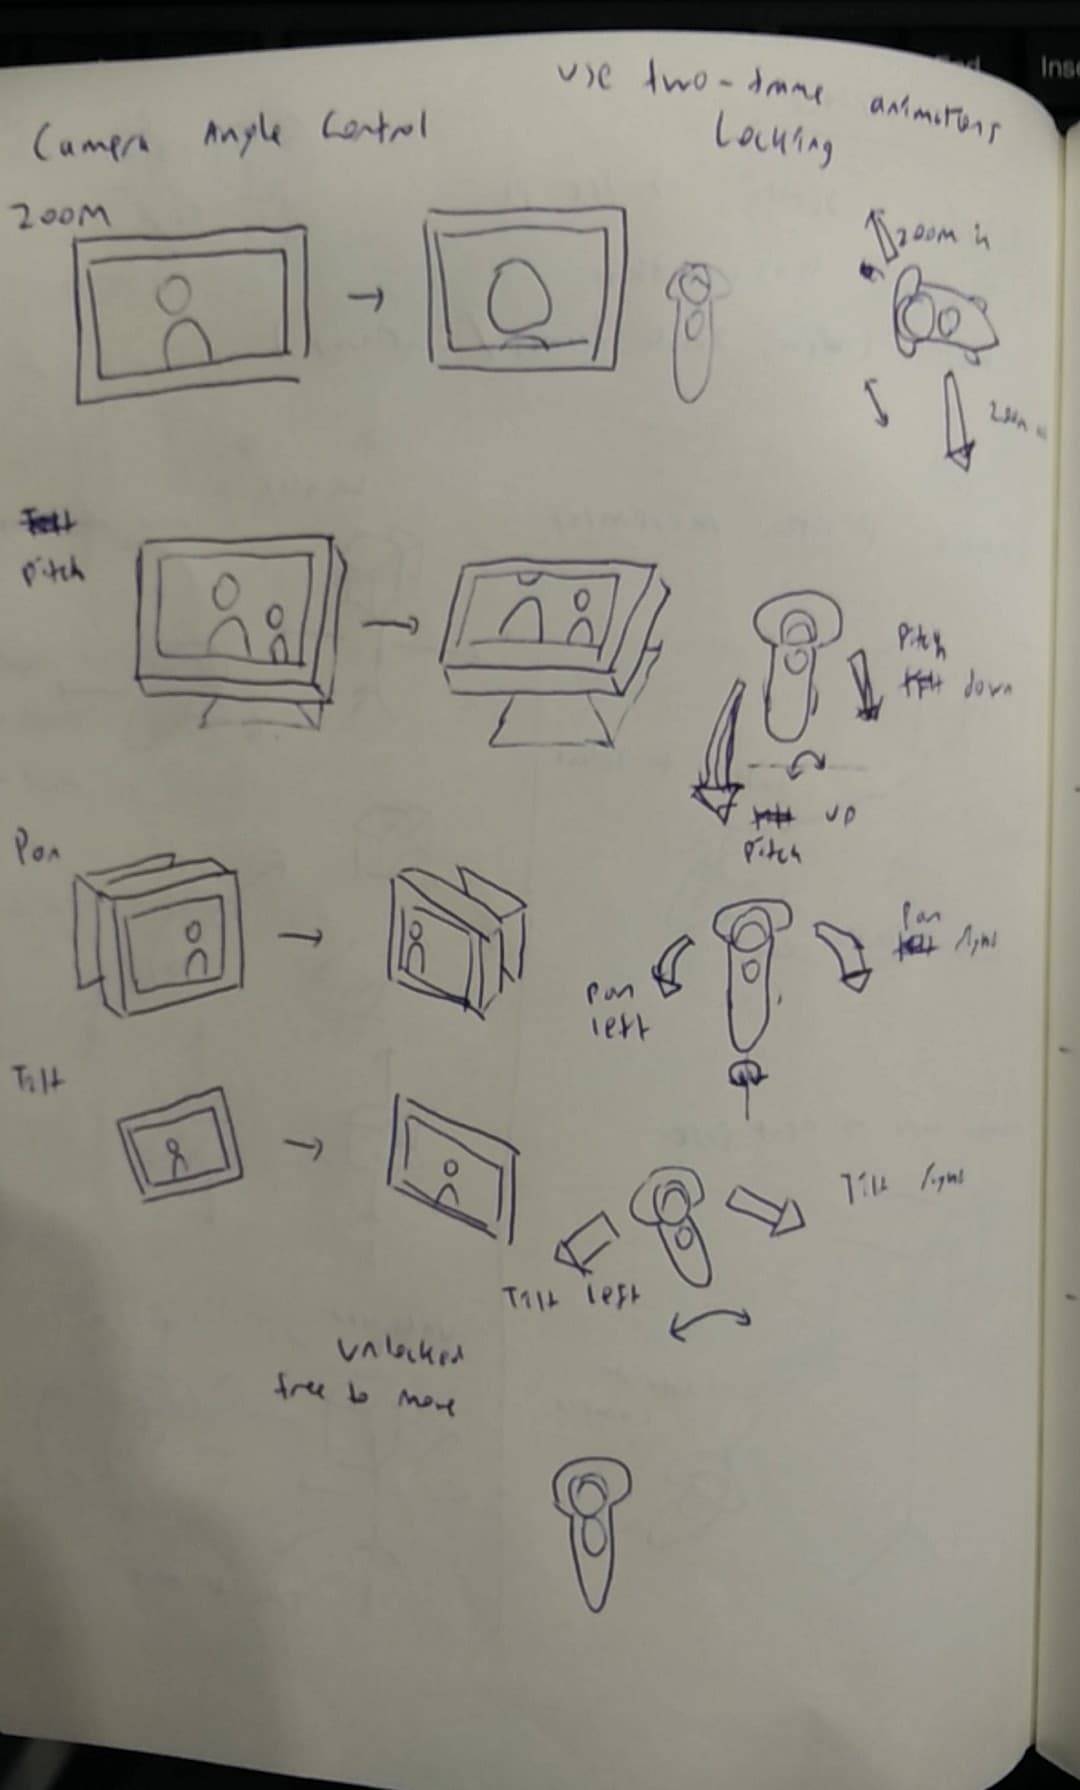 Use two-frame animations
Camera Angle Control
Locking
Zoom
Zoom in
Zoom
Pitch
Pitch
down
up
Pitch
Pan
Pan
right
Pan
left
Tilt
Tilt right
Tilt left
unlocked
free to move
Ins